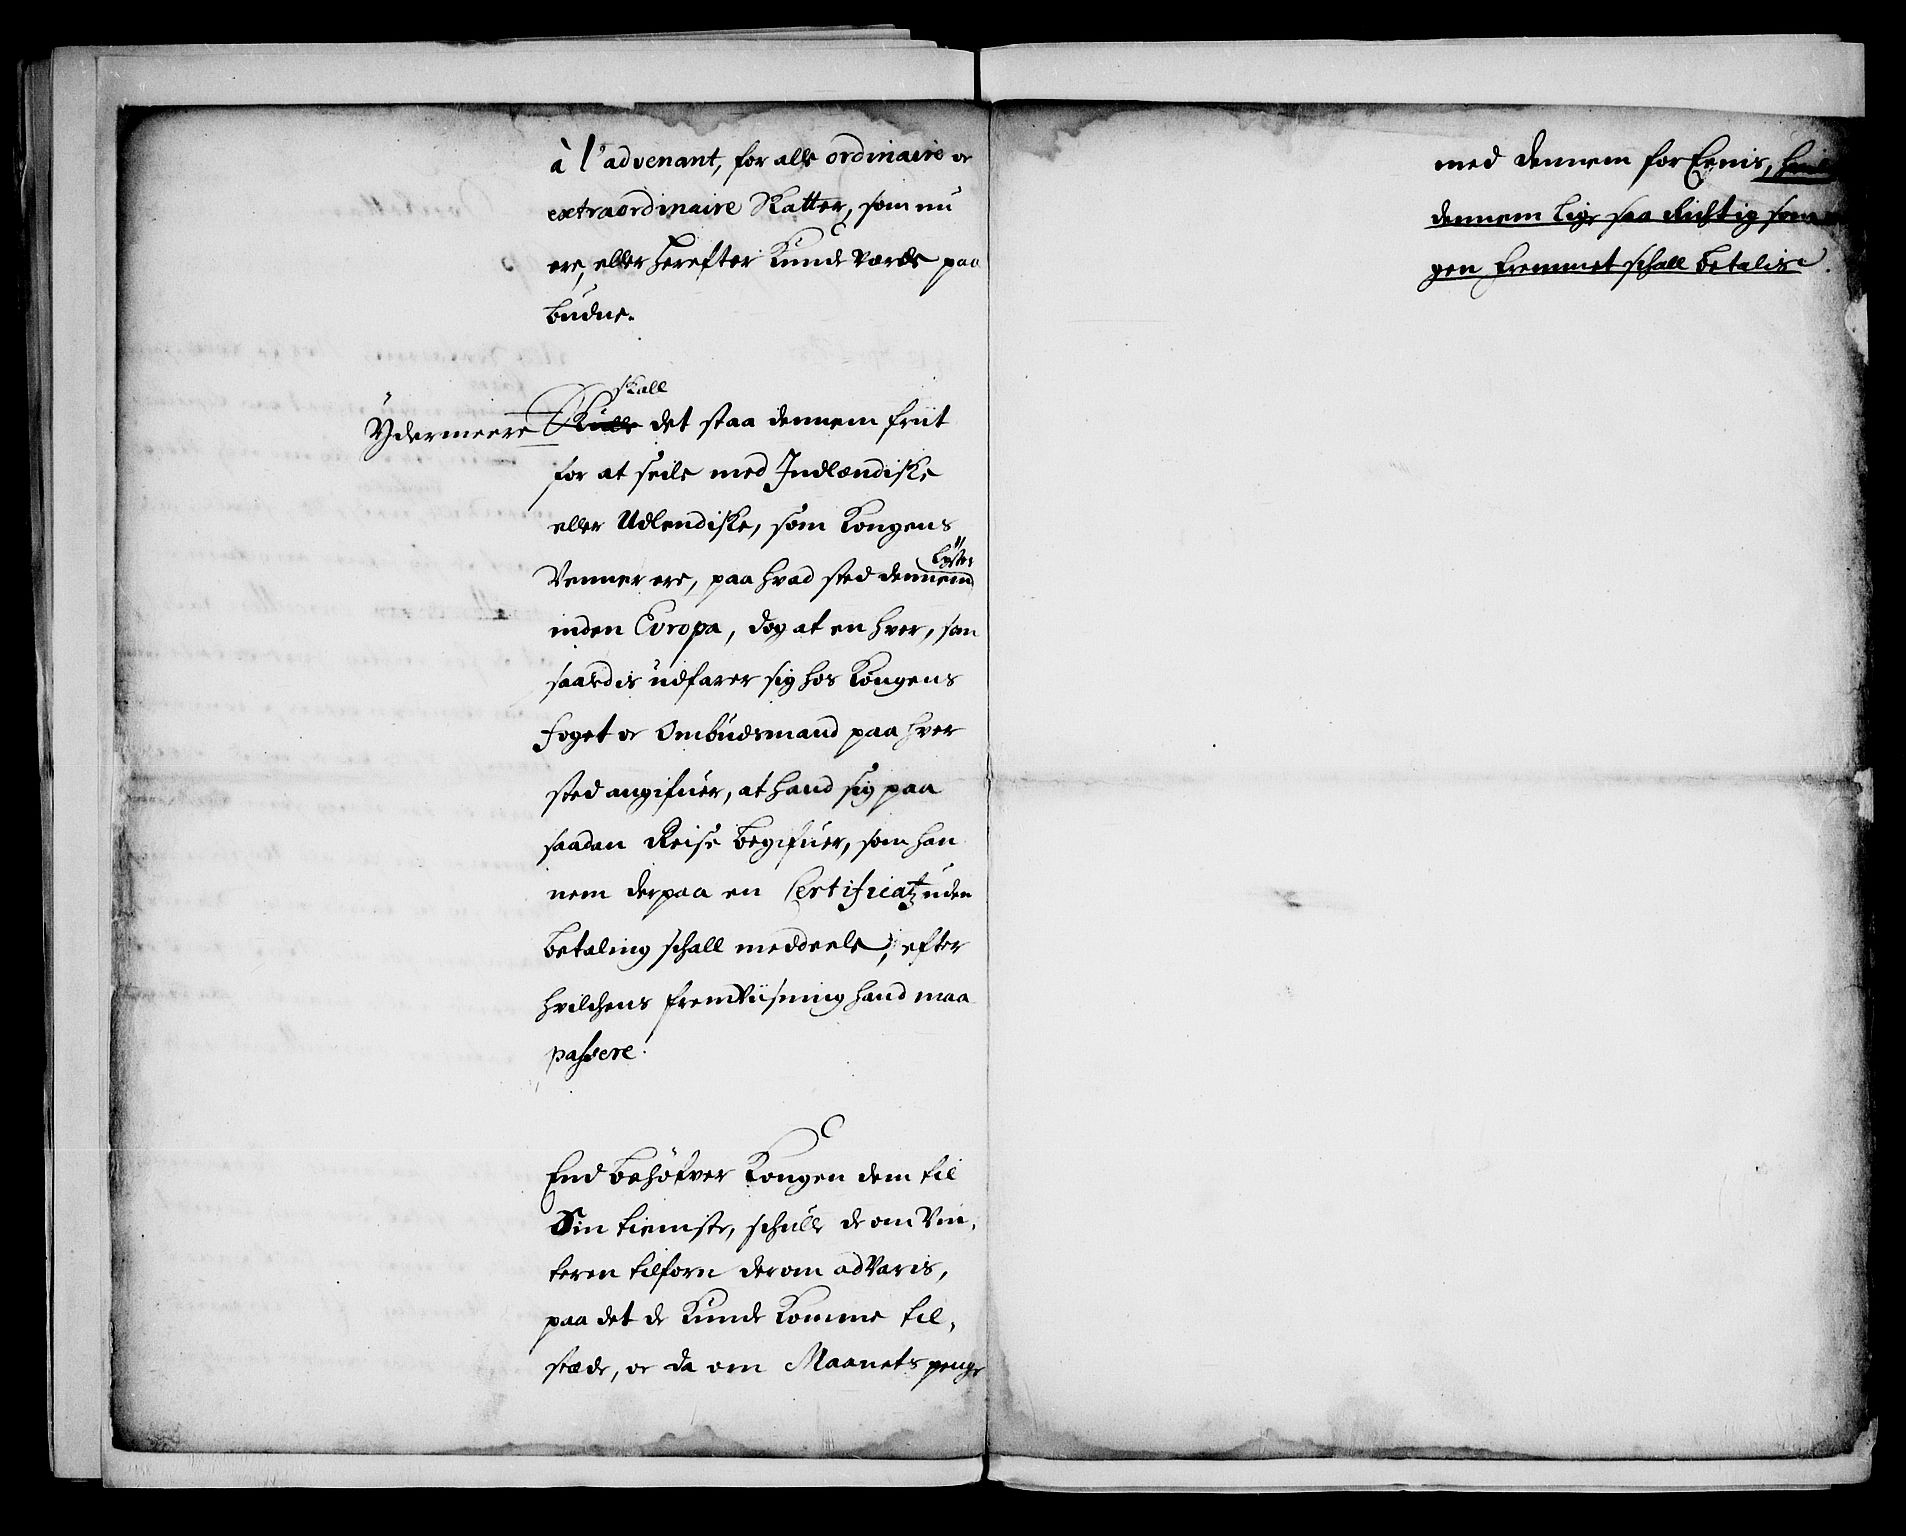 à l'advenant, for alle ordinaire oc
extraordinaire Skatter, som nu
ere, eller herefter Kunde vorde paa
budne.
skall
Ydermeere Skulle det staa dennem friit
for at seile med Indlændiske
eller Udlendiske, som Kongens
lyster
Venner ere, paa hvad sted dennem
inden Evropa, dog at en hver, som
saaledis udfarer sig hos Kongens
foget oc Ombudsmand paa hver
sted angifuer, at hand sig paa
saadan Reise begifuer, som han
nem derpaa en Certificatz uden
betaling schall meddeele, efter
hvilchens fremviisning hand maa
passere.
End behøfver Kongen dem til
Sin tieniste, schulle de om Vin,
teren tilforn derom advaris,
paa det de Kunde Komme til,
stæde, oc da om Maanets penge
med dennem for Eenis,
dennem lige saa richtig som
gen fremmet schall betalis.